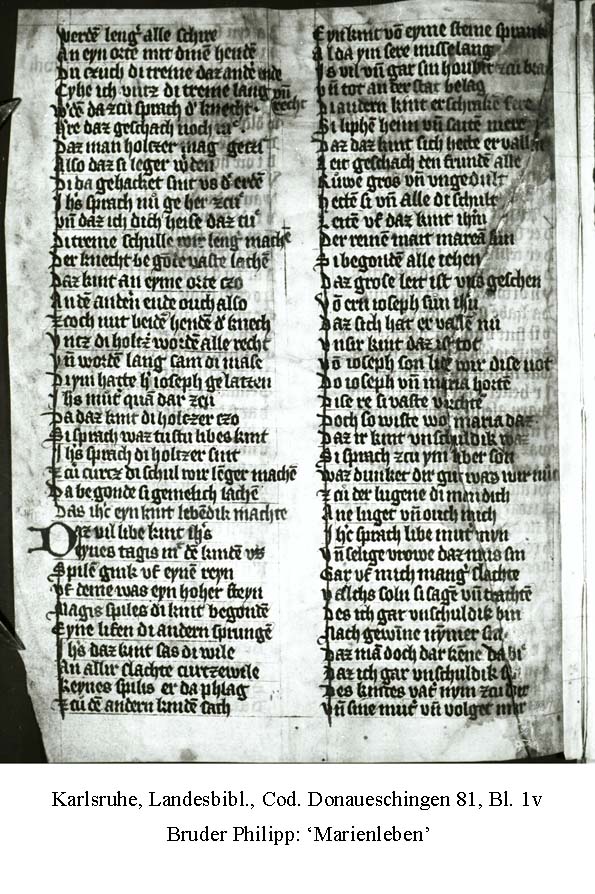 werdē lengˢ alle schire
An eyn orte mit dinē hendē
Du czuch di treme daz andˢ ende
Czhe ich vntz di treme lang vñ
w'dē da zcu sprach dˢ knecht recht
Are daz geschach noch
Daz man holtzer mag
Also daz si leger w'den
Di da gehacket sint vs dˢ erdē
Ihˢs sprach nu ge her zcu
vñ daz ich dich heise daz tuˢ
Di treme schulle wir leng machē
Der knecht be gōte vaste lachē
Daz kint an eyme orte czo
An dē andˢn ende ouch also
Zcoch mit beidē hendē dˢ knech
Vntz di holtzˢ wordē alle recht
Vñ wordē lang sam di mase
Di ym hatte hˢ ioseph gelatzen
Ihˢs mutˢ quā dar zcu
Da daz kint di holtzer czo
Si sprach waz tustu libes kint
Ihˢs sprach di holtzer sint
Zcu curcz di schul wir lēger machē
Da begonde si gemelich lachē
Das ihc eyn kint lebēdik machte
Daz vil libe kint ihˢs
Eynes tagis mˢ dē kindē vs
Spilē gink vf eynē reyn
Vf deme was eyn hoher steyn
Magis spiles di kint begondē
Eyne lifen di andern sprungē
Ihˢs daz kint sas di wile
An allir slachte curtzewile
Keynes spilis er da phlag
Zcu dē andern kindē sach
Eyn kint vō eyme steine sprank
Al da ym sere misselang
Is vil vñ gar sin houbit zcu brac
vñ tot an der stat belag
Di andern kint erschraken sere
Si liphē heim vñ saitē mere
Daz daz kint sich hette er vallen
Leit geschach den frundē alle
Ruwe gros vñ vngedult
hettē si vñ alle di schult
Leitē vf daz kint ihm
Der reinē mait mareā kin
Si begondē alle iehen
Daz grose leit ist vns geschen
Vō ern ioseph sun ihu
Daz sich hat er vallē nu
Vnsir kint daz ist tot
Vō ioseph son lide wir dise not
Do ioseph vñ maria hortē
Dise re si vaste vorchtē
Doch so wiste wol maria daz
Daz ir kint vnschuldik waz
Si sprach zcu ym liber son
waz dunket dir gut waz wir nu
Zcu der lugene di man dich
Ane luget vñ ouch mich
Ihˢc sprach libe mutˢ myn
Vñ selige vrowe daz mus sin
Gar vf mich mangˢ slachte
Valschs soln si sagē vñ trachtē
Des ich gar vnschuldik bin
Nach gewīne nymer
Daz mā doch dar kēne da bi
Daz ich gar vnschuldik
Des kindes vatˢ nym zcu dir
Vñ sine mutˢ vñ volget mir
Karlsruhe, Landesbibl., Cod. Donaueschingen 81, Bl. 1v
Bruder Philipp: ‘Marienleben’